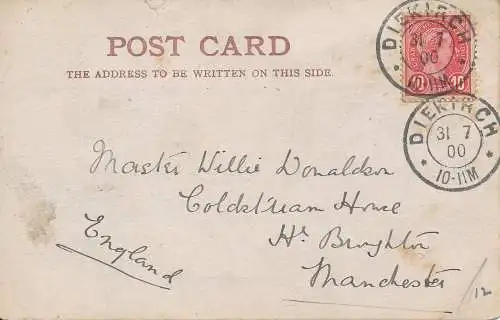 POST CARD
THE ADDRESS TO BE WRITTEN ON THIS SIDE.
DIEKIRCH
31 7
00
10-11M
10 10
DIEKIRCH
31 7
00
10-11M
Master Willie Donaldson
Coldstream House
Hr. Broughton
Manchester
England
/12